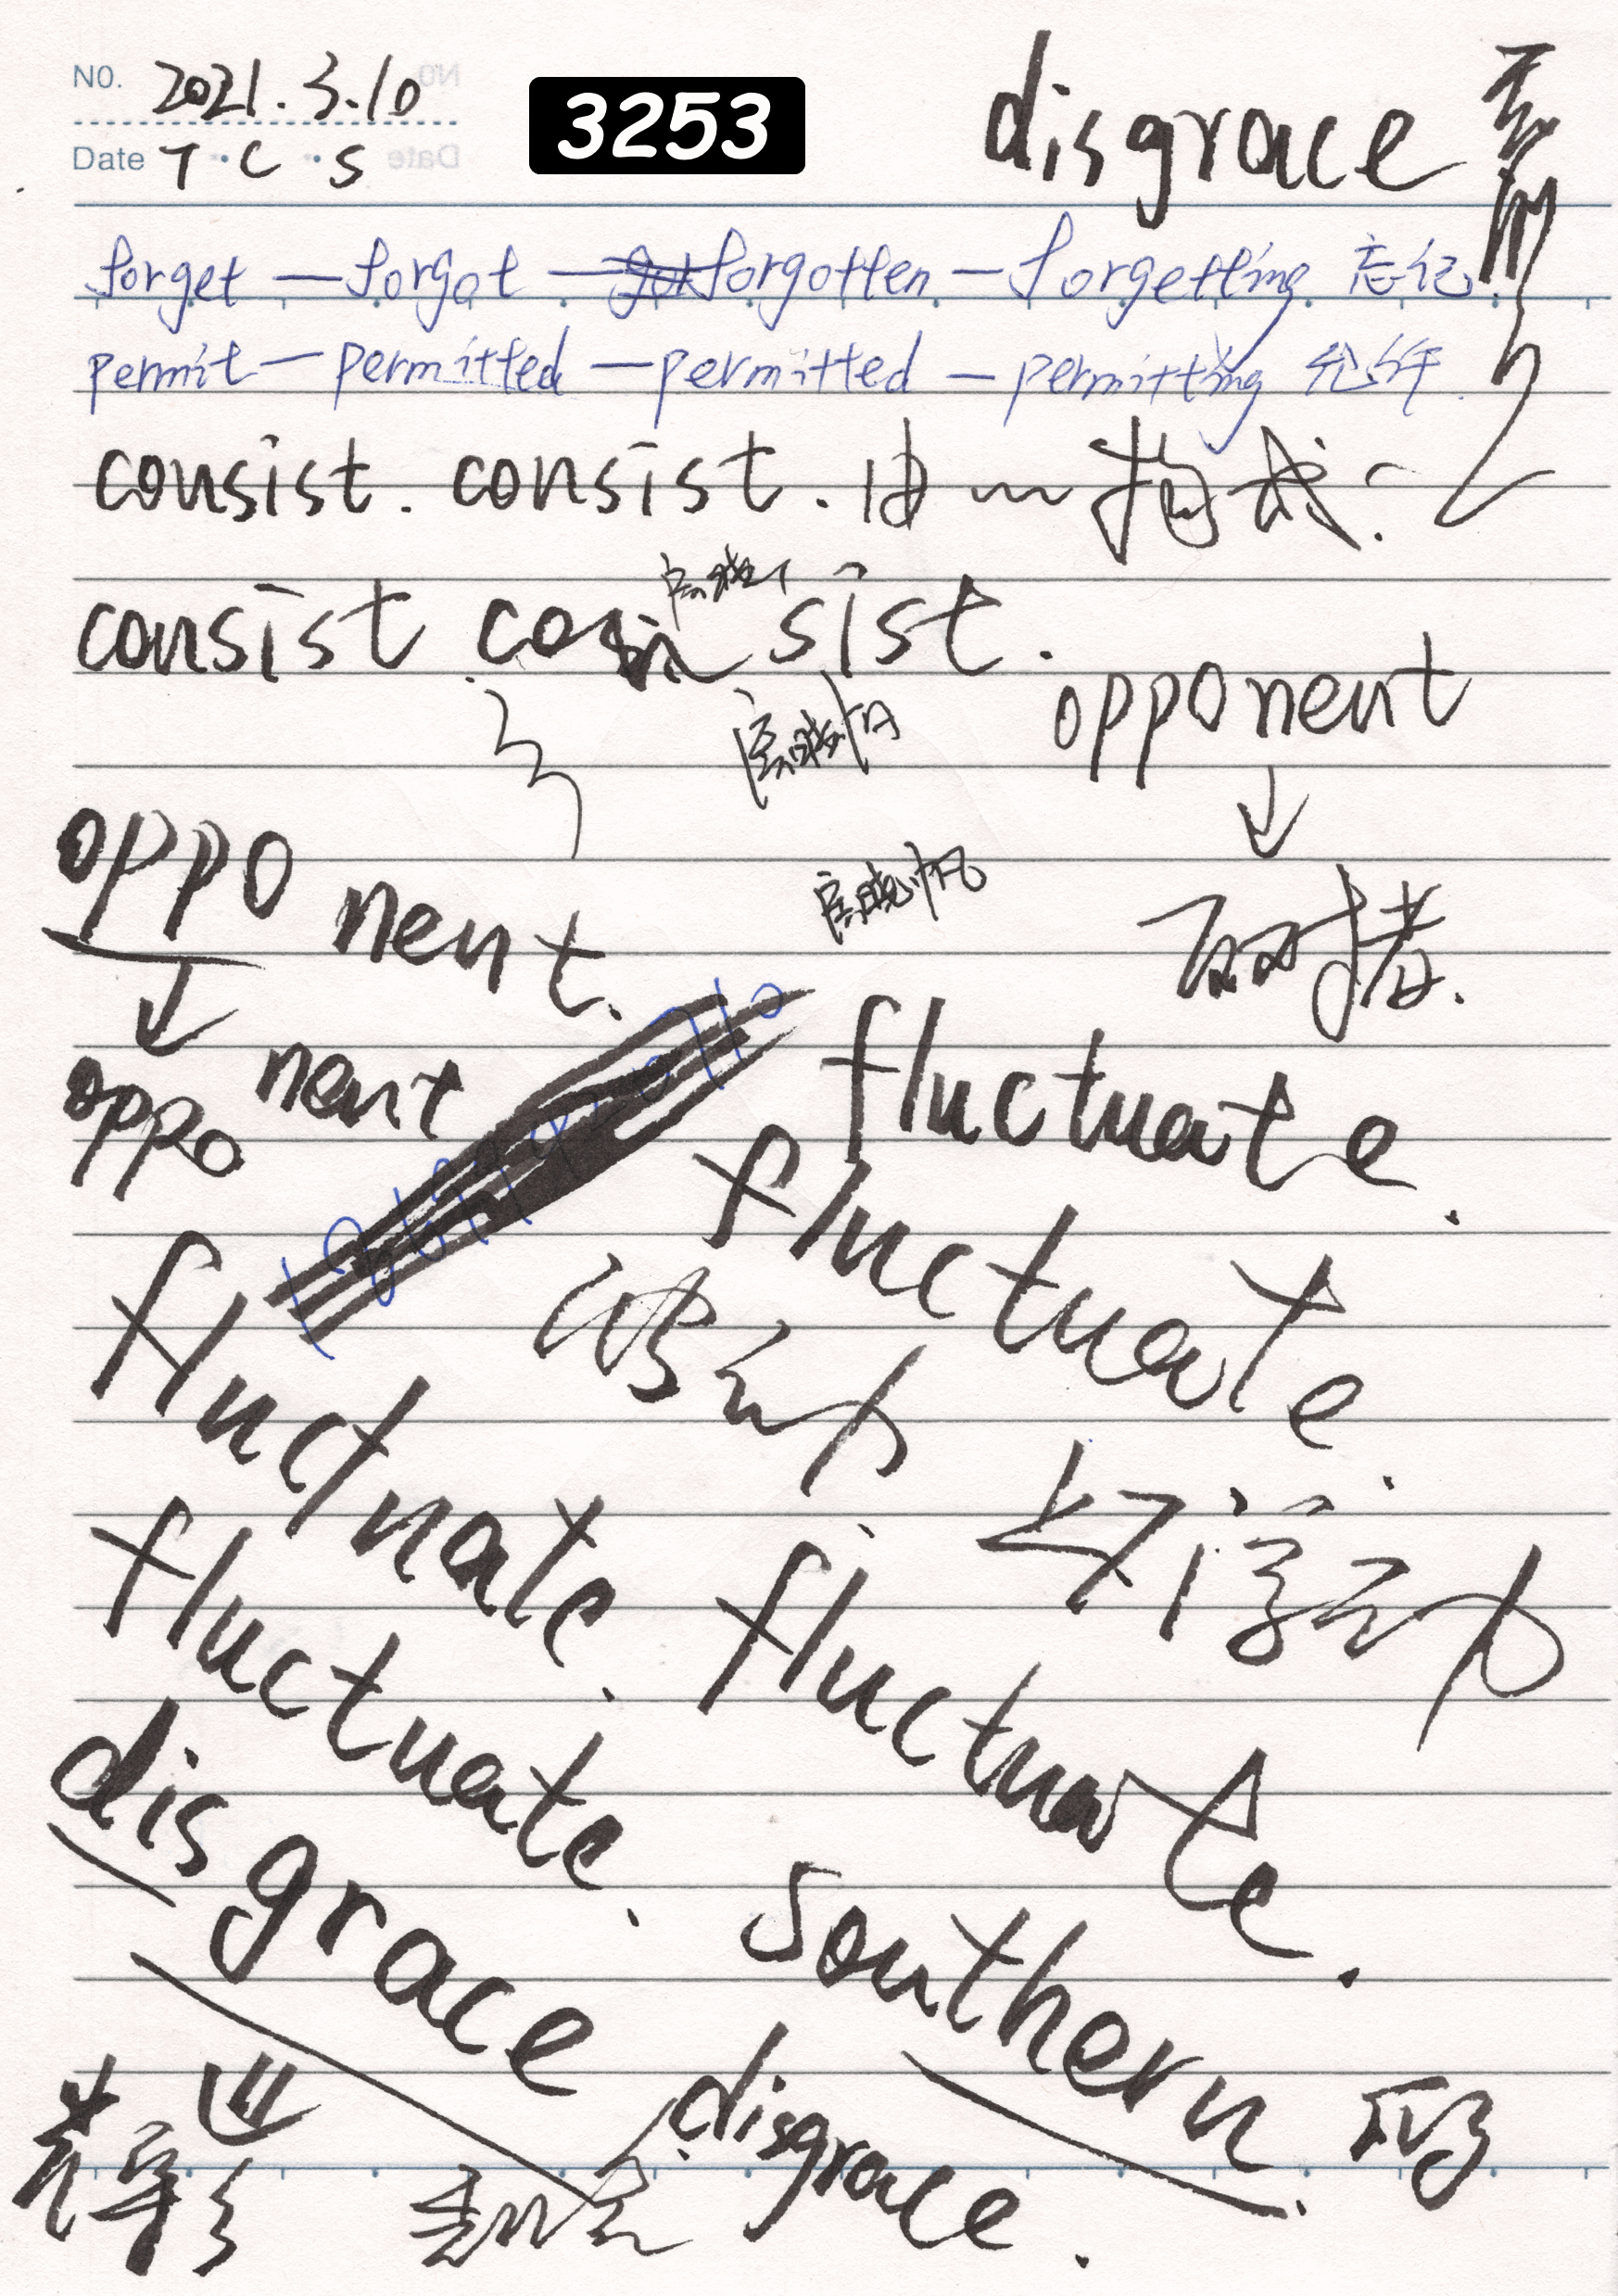 N0. 2021.3.10
3253
disgrace
Date T C S
forget — forgot — forgotten — forgetting 忘记.
permit — permitted — permitted — permitting 允许.
consist. consist. 由……构成.
consist consist.
opponent
oppo nent.
对手
oppo nent
fluctuate.
fluctuate.
波动
fluctuate.
上下浮动
fluctuate. fluctuate.
disgrace
southern.
disgrace.